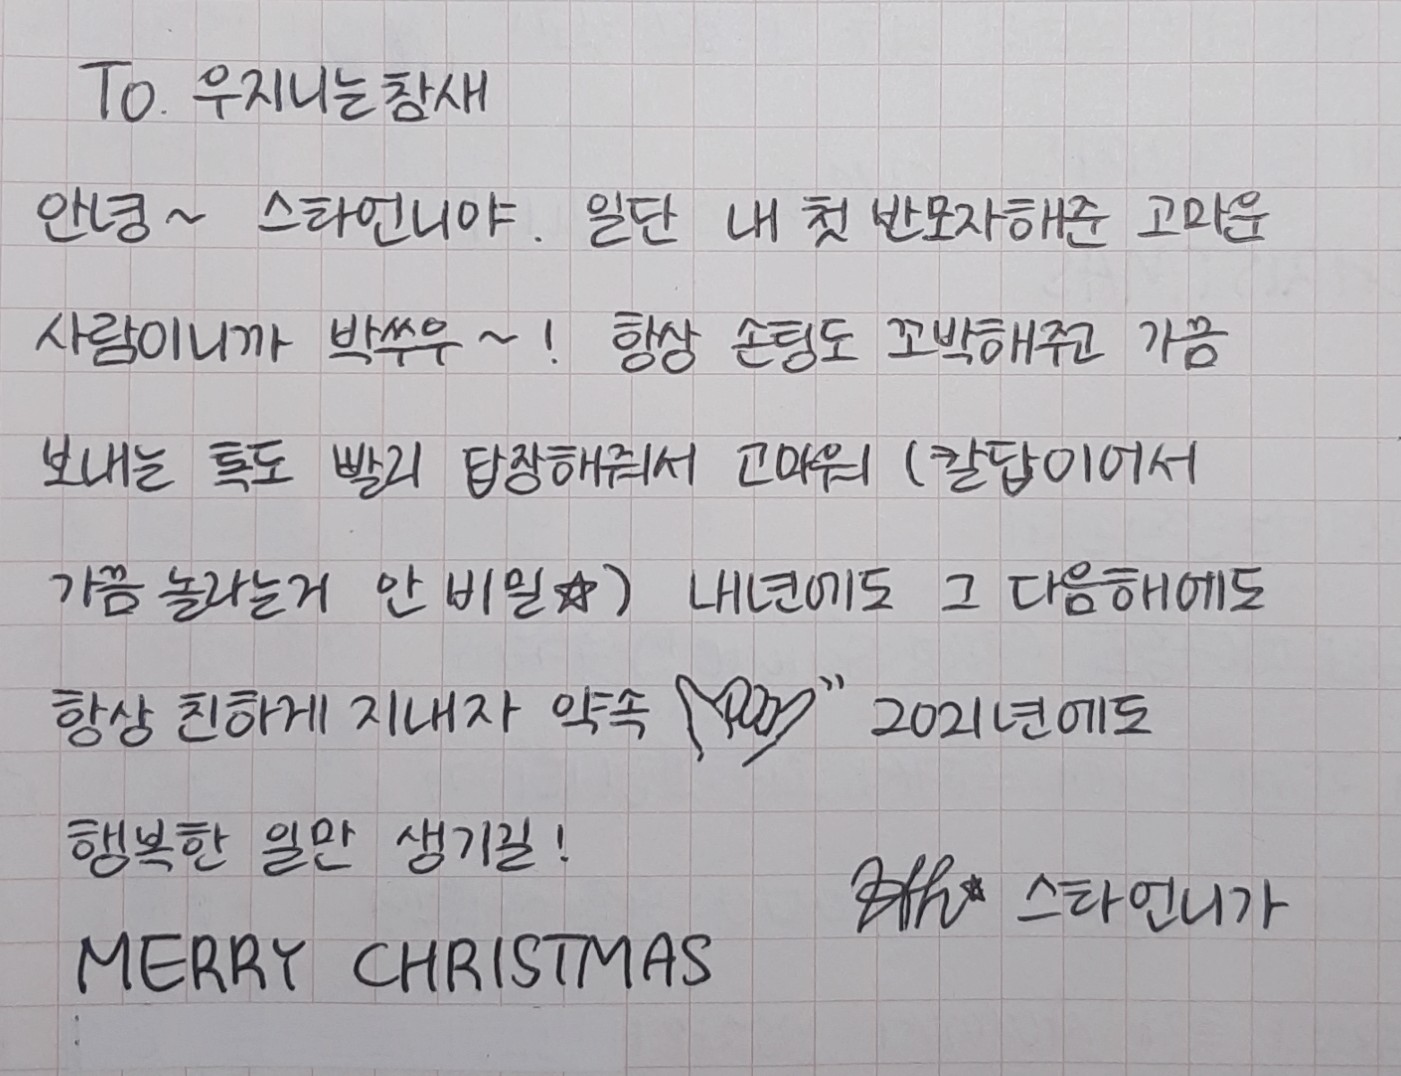 To. 우지니는참새
안녕~ 스타언니야. 일단 내 첫 반모자해준 고마운
사람이니까 박쑤우~! 항상 손팅도 꼬박해주고 가끔
보내는 톡도 빨리 답장해줘서 고마워 (칼답이어서
가끔 놀라는거 안 비밀☆) 내년에도 그 다음해에도
항상 친하게 지내자 약속 " 2021년에도
행복한 일만 생기길!
스타언니가
MERRY CHRISTMAS